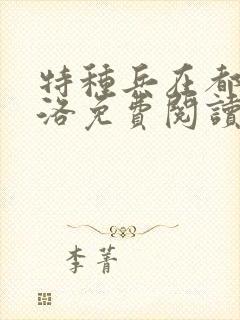 特種兵在都
洛免費閱讀
李菁